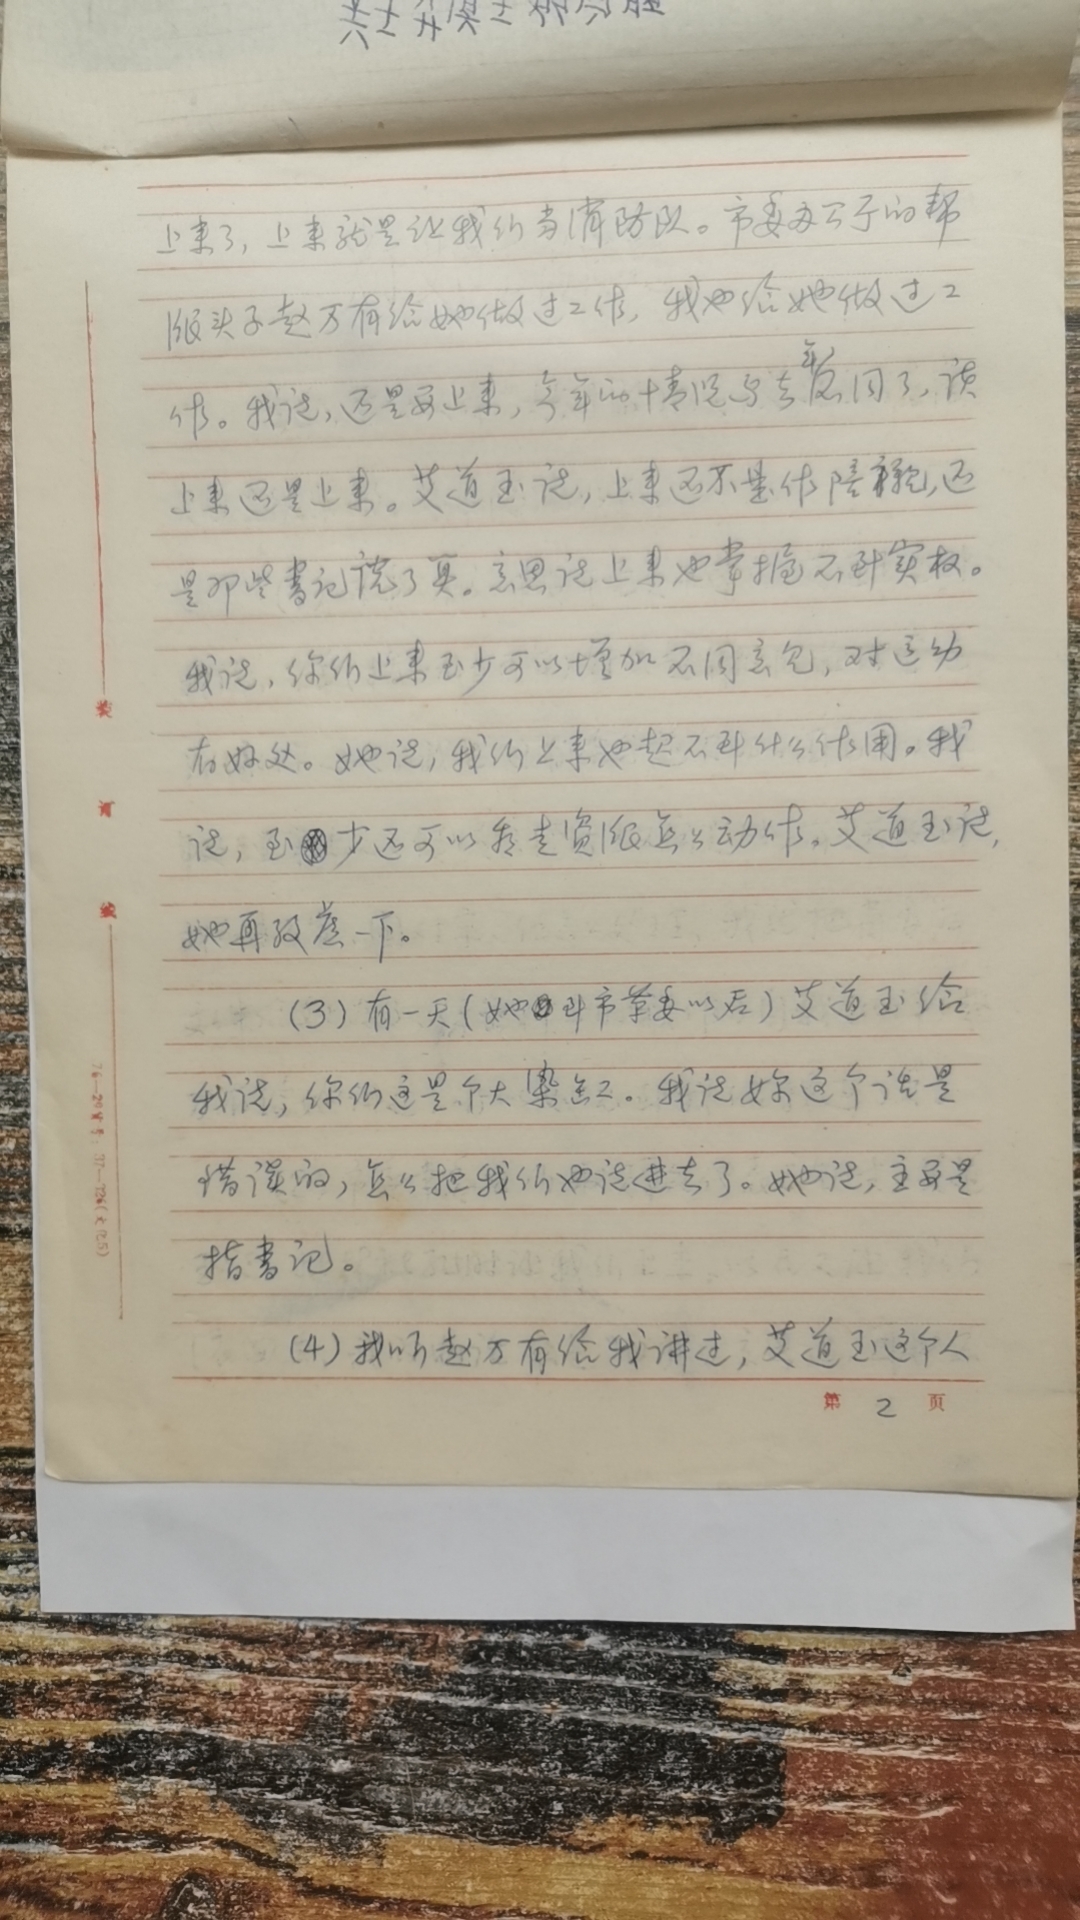 上来了，上来就是让我们当消防队。市委办公厅的帮
派头子赵万有给她做过工作，我也给她做过工
作。我说，还是要上来，今年的情况与去年不同了，该
上来还是上来。艾道玉说，上来还不是作陪衬，还
是那些书记说了算。意思说上来也掌握不到实权。
我说，你们上来至少可以增加不同意见，对运动
有好处。她说，我们上来也起不到什么作用。我
说，至少还可以看走资派怎么动作。艾道玉说，
她再考虑一下。
(3) 有一天(她到市革委以后) 艾道玉给
我说，你们这是个大染缸。我说妳这个话是
错误的，怎么把我们也说进去了。她说，主要是
指书记。
(4) 我听赵万有给我讲过，艾道玉这个人
第 2 页
装
订
线